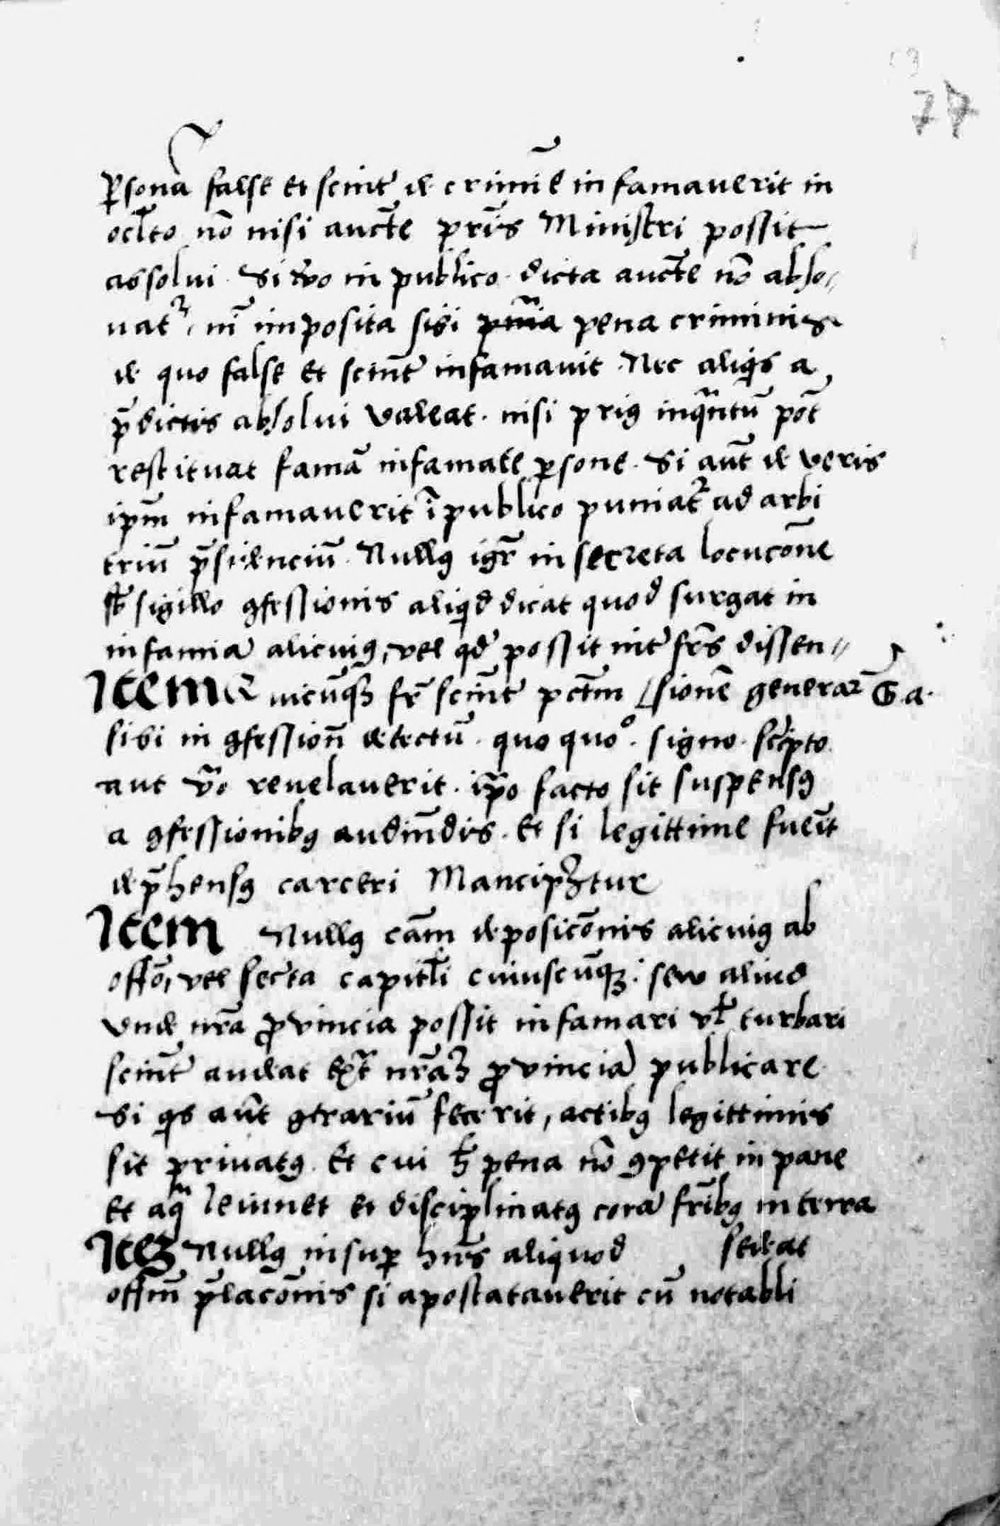 77
p̲sonā false et scint̄ de crimīe infamauerit in
oclto nō nisi auctē pr̄is Ministri possit
assolui. Si v̄o in publico. dicta auctē nō abso//
uatr, nī imposita sibi pena criminis
de quo false et scint̄ infamauit. Nec aliq̄s a
p̄dictis absolui valeat. nisi priꝰ inqᵃntū pōt
restituat famā infamate p̲sone. Si aūt de veris
ip̄m infamauerit ī publico puniatr ad arbi
triū p̄sidenciū. Nullꝰ igr̄ in secreta locucōne
sb̄ sigillo ꝯfessionis aliqd dicat quod surgat in
infamiā alicuiꝰ, vel qd̄ possit int̄ fr̄s dissen//
Item Q uicūqꝫ fr̄ scīnt̄ pctm̄ /sionē generar̄ G.a.
sibi in ꝯfessioñ detectū. quo quoº. signo. scīpto
aut v̄o reuelauerit. ip̄o facto sit suspensꝰ
a ꝯfessionibꝰ audiēndis. Et si legittime fueīt
dep̄hensꝰ carceri Mancipetur
Item Nullꝰ cām deposicōnis alicuiꝰ ab
offō, vel secta capitli cuiuscūqꝫ. seu aliud
vnde nrā ꝓvincia possit infamari vl̄ turbari
scint̄ audeat ext̄ nrāꝫ ꝓvinciā publicare
Si qis aūt ꝯtrariū fecerit, actibꝰ legittimis
sit priuatꝰ. Et cui h̄ pena nō ꝯpetit in pane
et aqᵃ leiunet et disciplinatꝰ corā fr̄ibꝰ in terra
Iteꝫ Nullꝰ insup̲ hn̄s aliquod sedeat
offm̄ p̄lacōnis si apostatauerit cū notabli